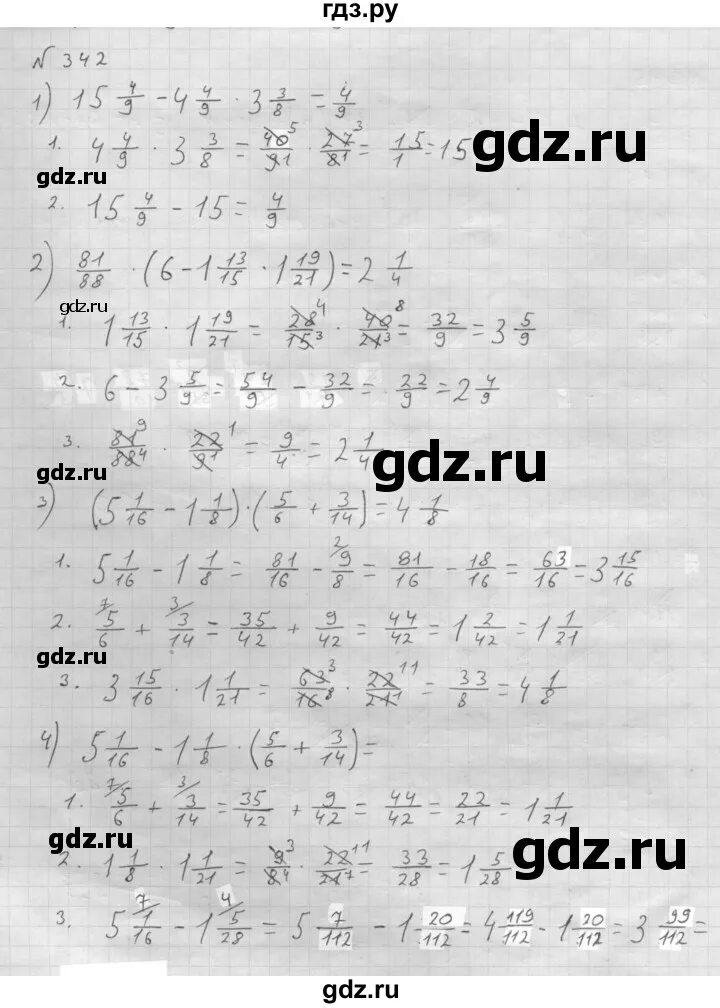 гдз.ру
№ 342
1) 15 4/9 - 4 4/9 · 3 3/8 = 4/9
1. 4 4/9 · 3 3/8 = 40⁵/9₁ · 27³/8₁ = 15/1 = 15
gdz.ru
gdz.ru
2. 15 4/9 - 15 = 4/9
2) 81/88 · (6 - 1 13/15 · 1 19/21) = 2 1/4
gdz.ru
1. 1 13/15 · 1 19/21 = 28⁴/15₃ · 40⁸/21₃ = 32/9 = 3 5/9
2. 6 - 3 5/9 = 54/9 - 32/9 = 22/9 = 2 4/9
3. 81⁹/88₄ · 22¹/9₁ = 9/4 = 2 1/4
gdz.ru
gdz.ru
3) (5 1/16 - 1 1/8) · (5/6 + 3/14) = 4 1/8
1. 5 1/16 - 1 1/8 = 81/16 - ²⁄9/8 = 81/16 - 18/16 = 63/16 = 3 15/16
2. ⁷⁄5/6 + ³⁄3/14 = 35/42 + 9/42 = 44/42 = 1 2/42 = 1 1/21
gdz.ru
3. 3 15/16 · 1 1/21 = 63³/16₈ · 22¹¹/21₁ = 33/8 = 4 1/8
4) 5 1/16 - 1 1/8 · (5/6 + 3/14) =
1. ⁷⁄5/6 + ³⁄3/14 = 35/42 + 9/42 = 44/42 = 22/21 = 1 1/21
gdz.ru
gdz.ru
2. 1 1/8 · 1 1/21 = 9³/8₄ · 22¹¹/21₇ = 33/28 = 1 5/28
3. 5 ⁷⁄1/16 - 1 ⁴⁄5/28 = 5 7/112 - 1 20/112 = 4 119/112 - 1 20/112 = 3 99/112 =
gdz.ru